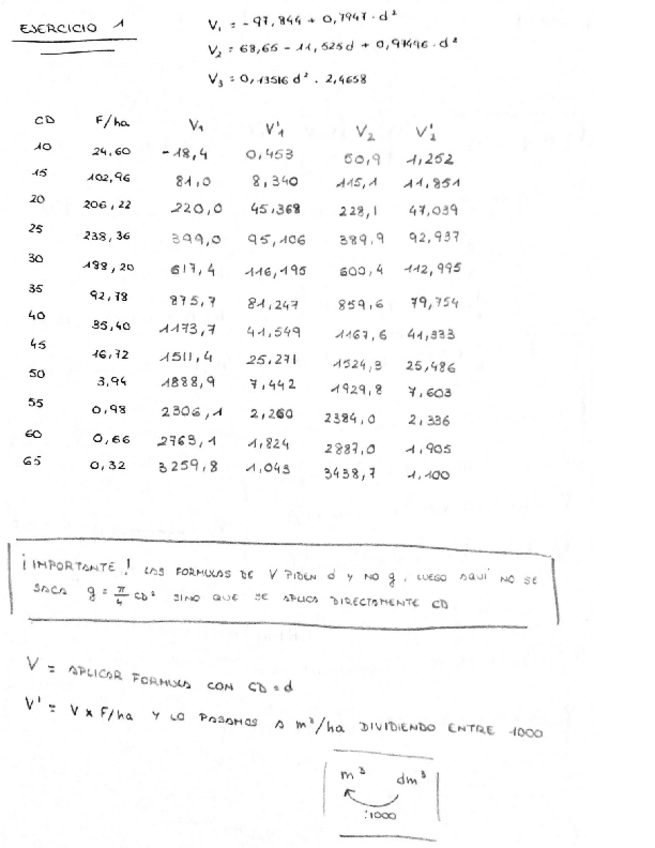 EJERCICIO 1
V₁ = -97,844 + 0,7947 · d²
V₂ = 68,66 - 11,525d + 0,97496 · d²
V₃ = 0,13516 d² · 2,4658
CD F/ha V₁ V'₁ V₂ V'₂
10 24,60 -18,4 0,453 50,9 1,252
15 102,96 81,0 8,340 115,1 11,851
20 206,22 220,0 45,368 228,1 47,039
25 238,36 399,0 95,106 389,9 92,937
30 188,20 617,4 116,195 600,4 112,995
35 92,78 875,7 81,247 859,6 79,754
40 35,40 1173,7 41,549 1167,6 41,333
45 16,72 1511,4 25,271 1524,3 25,486
50 3,94 1888,9 7,442 1929,8 7,603
55 0,98 2306,1 2,260 2384,0 2,336
60 0,66 2763,1 1,824 2887,0 1,905
65 0,32 3259,8 1,043 3438,7 1,100
¡IMPORTANTE! LAS FORMULAS DE V PIDEN d Y NO g, LUEGO AQUÍ NO SE
SACA g = π/4 CD² SINO QUE SE APLICA DIRECTAMENTE CD
V = APLICAR FORMULA CON CD = d
V' = V x F/ha Y LO PASAMOS A m³/ha DIVIDIENDO ENTRE 1000
m³ dm³
:1000